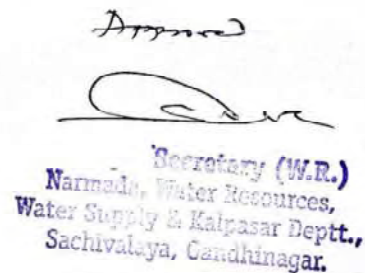 Approved
Secretary (W.R.)
Narmada, Water Resources,
Water Supply & Kalpasar Deptt.,
Sachivalaya, Gandhinagar.